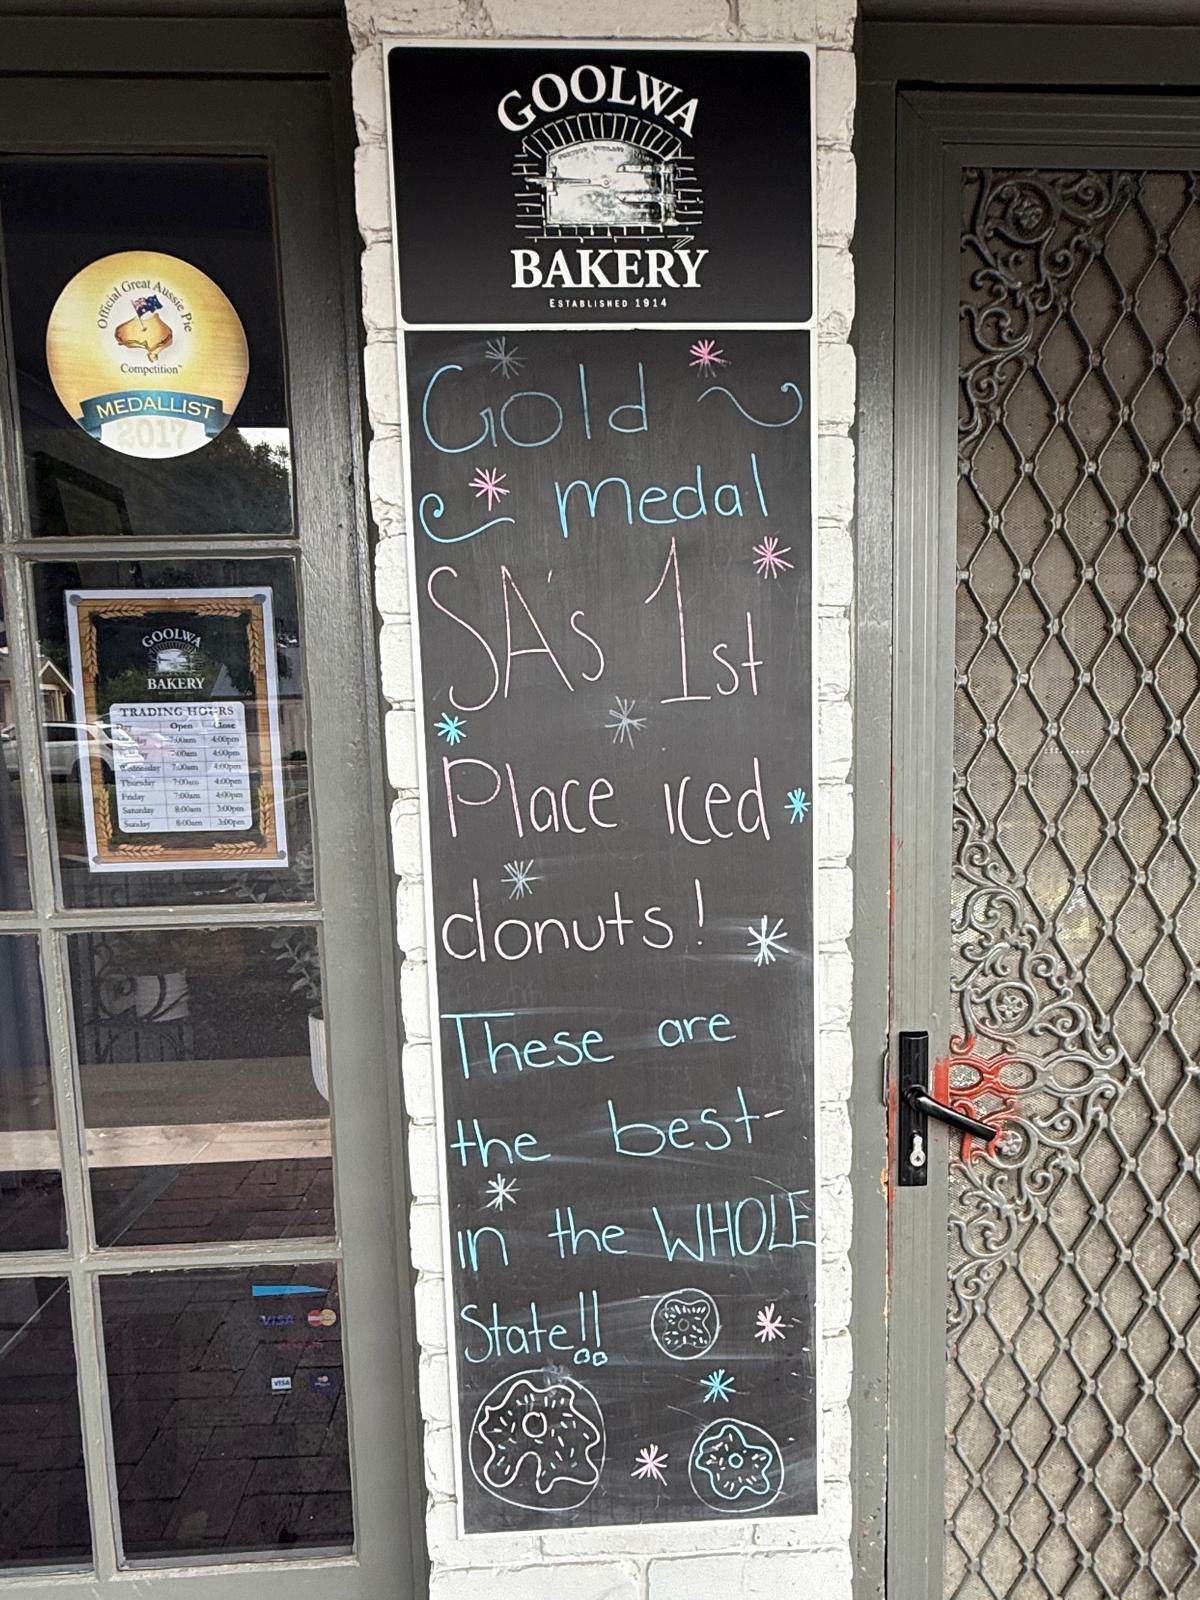 GOOLWA
BAKERY
ESTABLISHED 1914
Gold
medal
SA's 1st
Place iced
donuts!
These are
the best-
in the WHOLE
State!!
Official Great Aussie Pie
Competition
MEDALLIST
2017
GOOLWA
BAKERY
TRADING HOURS
Day Open Close
7:00am 4:00pm
7:00am 4:00pm
Wednesday 7:00am 4:00pm
Thursday 7:00am 4:00pm
Friday 7:00am 4:00pm
Saturday 8:00am 3:00pm
Sunday 8:00am 3:00pm
VISA
VISA